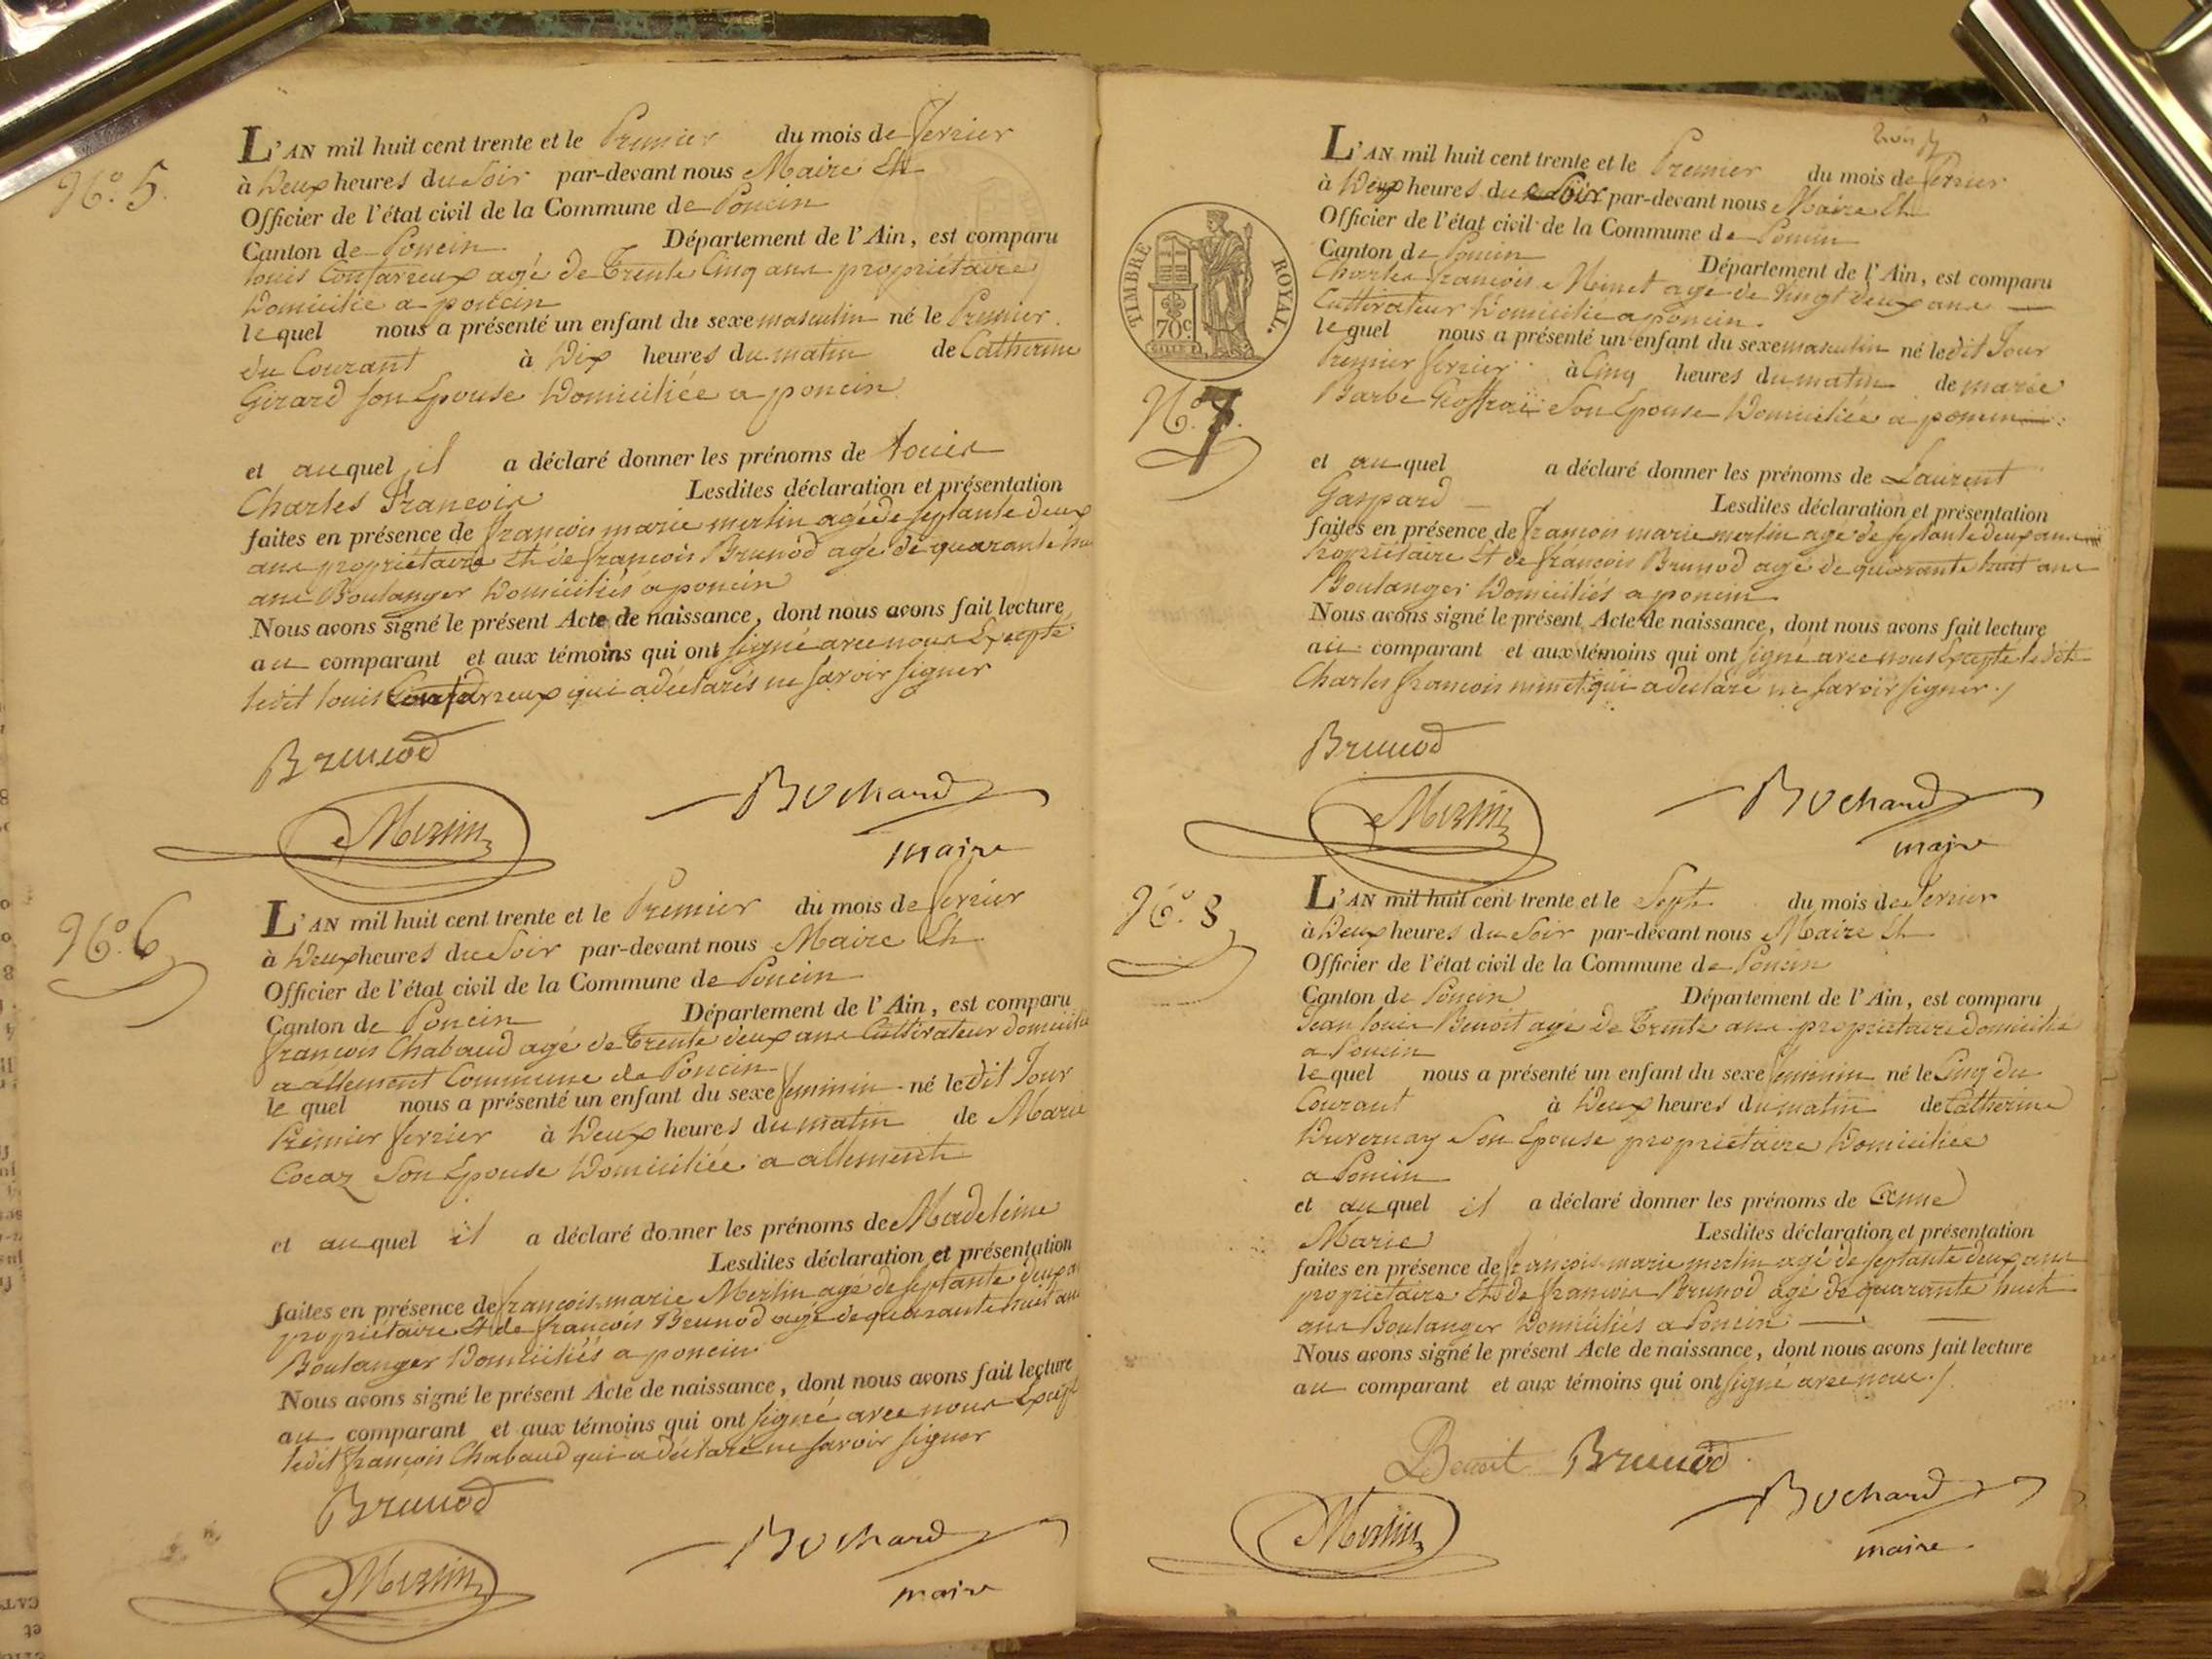 N.° 5.
L'AN mil huit cent trente et le Premier du mois de fevrier
à Deux heures du Soir par-devant nous Maire Et
Officier de l'état civil de la Commune de Poncin
Canton de Poncin Département de l'Ain, est comparu
louis Confavreux agé de Trente Cinq ans propriétaire
Domicilié a poncin
lequel nous a présenté un enfant du sexe masculin né le Premier
du Courant à Dix heures du matin de Catherine
Girard son Epouse Domiciliée a poncin
et auquel il a déclaré donner les prénoms de Louis
Charles Francois Lesdites déclaration et présentation
faites en présence de françois marie merlin agé de septante deux
ans propriétaire Et de françois Brunod agé de quarante
ans Boulanger Domiciliés a poncin
Nous avons signé le présent Acte de naissance, dont nous avons fait lecture
au comparant et aux témoins qui ont signé avec nous Excepté
ledit louis Confavreux qui a déclarés ne savoir signer
Brunod
Merlin
Bochard
maire
N.° 6
L'AN mil huit cent trente et le Premier du mois de fevrier
à Deux heures du Soir par-devant nous Maire Et
Officier de l'état civil de la Commune de Poncin
Canton de Poncin Département de l'Ain, est comparu
françois Chabaud agé de Trente deux ans Cultivateur domicilié
a allement Commune de Poncin
le quel nous a présenté un enfant du sexe feminin né ledit Jour
Premier fevrier à Deux heures du matin de Marie
Cocaz Son Epouse Domiciliée a allement
et auquel il a déclaré donner les prénoms de Madeleine
Lesdites déclaration et présentation
faites en présence de françois marie Merlin agé de septante deux
propriétaire Et de françois Brunod agé de quarante huit ans
Boulanger Domiciliés a poncin
Nous avons signé le présent Acte de naissance, dont nous avons fait lecture
au comparant et aux témoins qui ont signé avec nous
ledit françois Chabaud qui a déclaré ne savoir signer
Brunod
Merlin
Bochard
maire
TIMBRE ROYAL.
70c
N.° 7.
L'AN mil huit cent trente et le Premier du mois de fevrier
à Deux heures du Soir par-devant nous Maire Et
Officier de l'état civil de la Commune de Poncin
Canton de Poncin Département de l'Ain, est comparu
Charles françois Minet agé de Vingt deux ans
Cultivateur Domicilié a poncin.
lequel nous a présenté un enfant du sexe masculin né ledit Jour
Premier fevrier à Cinq heures du matin de marie
Barbe Geoffrai Son Epouse Domiciliée a poncin
et auquel a déclaré donner les prénoms de Laurent
Gaspard Lesdites déclaration et présentation
faites en présence de françois marie merlin agé de septante deux ans
Propriétaire Et de françois Brunod agé de quarante huit ans
Boulanger Domiciliés a poncin
Nous avons signé le présent Acte de naissance, dont nous avons fait lecture
au comparant et aux témoins qui ont signé avec nous Excepté ledit
Charles françois minet qui a declaré ne savoir signer./
Brunod
Merlin
Bochard
maire
N.° 8
L'AN mil huit cent trente et le Sept du mois de fevrier
à Deux heures du Soir par-devant nous Maire Et
Officier de l'état civil de la Commune de Poncin
Canton de Poncin Département de l'Ain, est comparu
Jean louis Benoit agé de Trente ans propriétaire Domicilié
a Poncin
lequel nous a présenté un enfant du sexe feminin né le Cinq du
Courant à Deux heures du matin de Catherine
Duvernay Son Epouse propriétaire Domiciliée
a Poncin
et auquel il a déclaré donner les prénoms de Anne
Marie Lesdites déclaration et présentation
faites en présence de françois marie merlin agé de septante deux ans
propriétaire Et de françois Brunod agé de quarante huit
ans Boulanger Domiciliés a Poncin
Nous avons signé le présent Acte de naissance, dont nous avons fait lecture
au comparant et aux témoins qui ont signé avec nous./
Benoit Brunod
Merlin
Bochard
maire